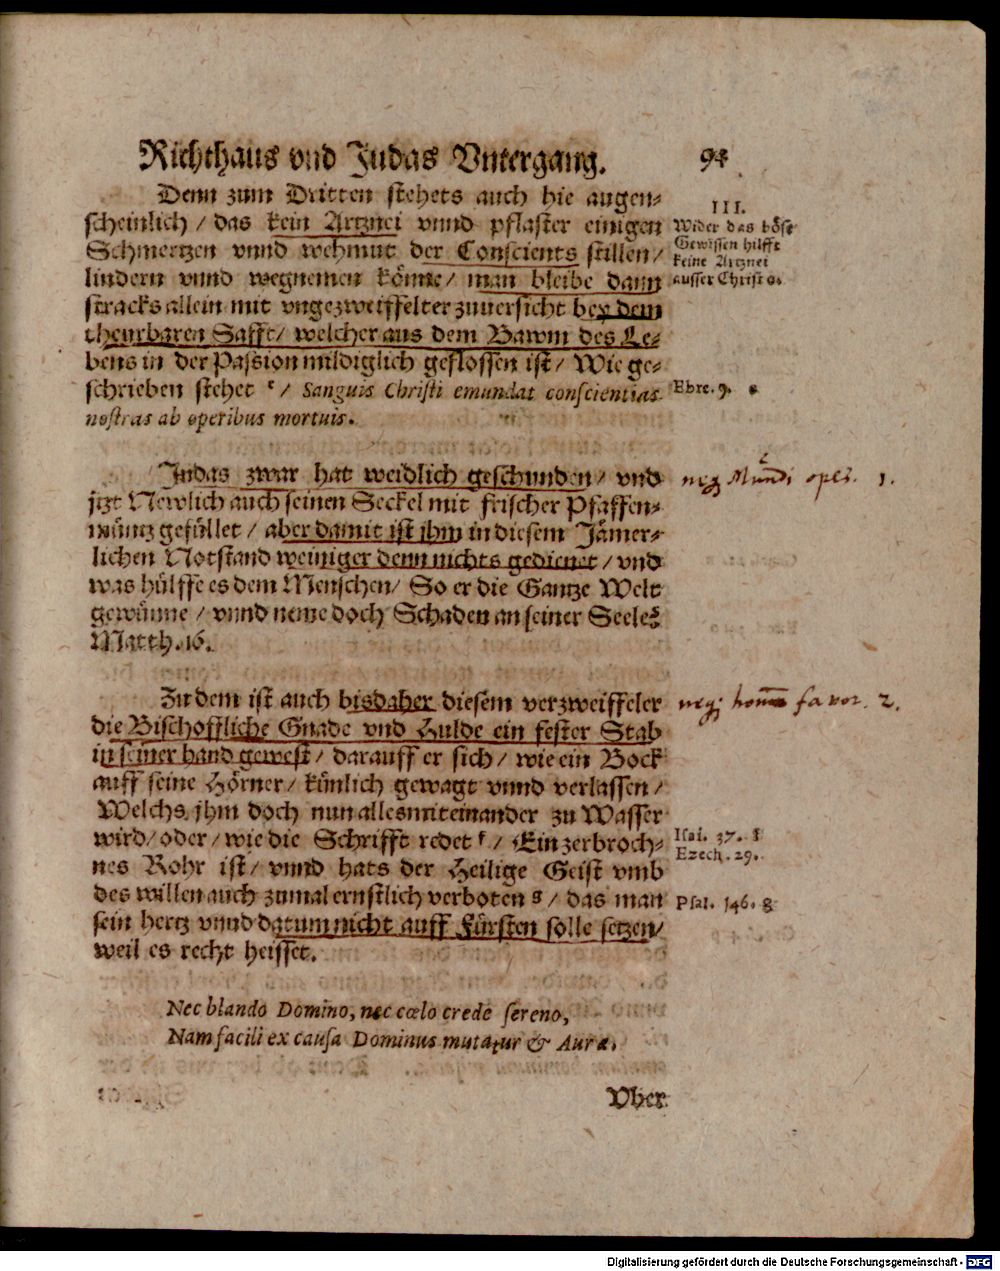 Richthaus vnd Judas Vntergang. 94
Denn zum Dritten stehets auch hie augen⸗
scheinlich / das kein Artznei vnnd pflaster einigen
Schmertzen vnnd wehmut der Conscients stillen /
lindern vnnd wegnemen könne / man bleibe dann
stracks allein mit vngezweiffelter zuuersicht bey dem
theurbaren Safft / welcher aus dem Bawm des Le⸗
bens in der Passion mildiglich geflossen ist / Wie ge⸗
schrieben stehet e / Sanguis Christi emundat conscientias
nostras ab operibus mortuis.
III.
Wider das böse
Gewissen hilfft
keine Artznei
ausser Christo.
Ebre. 9. e
Judas zwar hat weidlich geschunden / vnd
jtzt Newlich auch seinen Seckel mit frischer Pfaffen⸗
müntz gefüllet / aber damit ist ihm in diesem Jämer⸗
lichen Notstand weiniger denn nichts gedienet / vnd
was hülffe es dem Menschen / So er die Gantze Welt
gewünne / vnnd neme doch Schaden an seiner Seele?
Matth. 16.
neq Mundi opes. 1.
Zu dem ist auch bisdaher diesem verzweiffeler
die Bischoffliche Gnade vnd Hulde ein fester Stab
in seiner hand gewest / darauff er sich / wie ein Bock
auff seine Hörner / künlich gewagt vnnd verlassen /
Welchs jhm doch nun alles miteinander zu Wasser
wird / oder / wie die Schrifft redet f / Ein zerbroch⸗
nes Rohr ist / vnnd hats der Heilige Geist vmb
des willen auch zumal ernstlich verboten g / das man
sein hertz vnnd datum nicht auff Fürsten solle setzen /
weil es recht heisset.
neq; hom favor. 2.
Isai. 37. f
Ezech. 29.
Psal. 146. g
Nec blando Domino, nec cœlo crede sereno,
Nam facili ex causa Dominus mutatur & Aura.
Vber
Digitalisierung gefördert durch die Deutsche Forschungsgemeinschaft - DFG